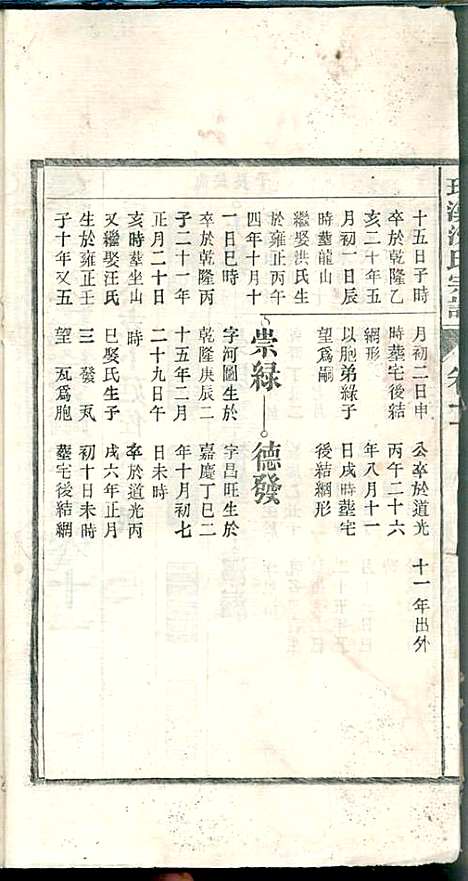 氏宗譜
十五日子時
卒於乾隆乙
亥二十年五
月初一日辰
時葬龍山
繼娶洪氏生
於雍正丙午
四年十月十
一日巳時
卒於乾隆丙
子二十一年
正月二十日
亥時葬坐山
又繼娶汪氏
生於雍正壬
子十年又五
月初二日申
時葬宅後結
網形
以胞弟綠子
望爲嗣
崇綠
字河圖生於
乾隆庚辰二
十五年二月
二十九日午
時
巳娶氏生子
三 發
望 爲胞
公卒於道光
丙午二十六
年八月十一
日戌時葬宅
後結網形
德發
字昌旺生於
嘉慶丁巳二
年十月初七
日未時
卒於道光丙
戌六年正月
初十日未時
葬宅後結網
十一年出外